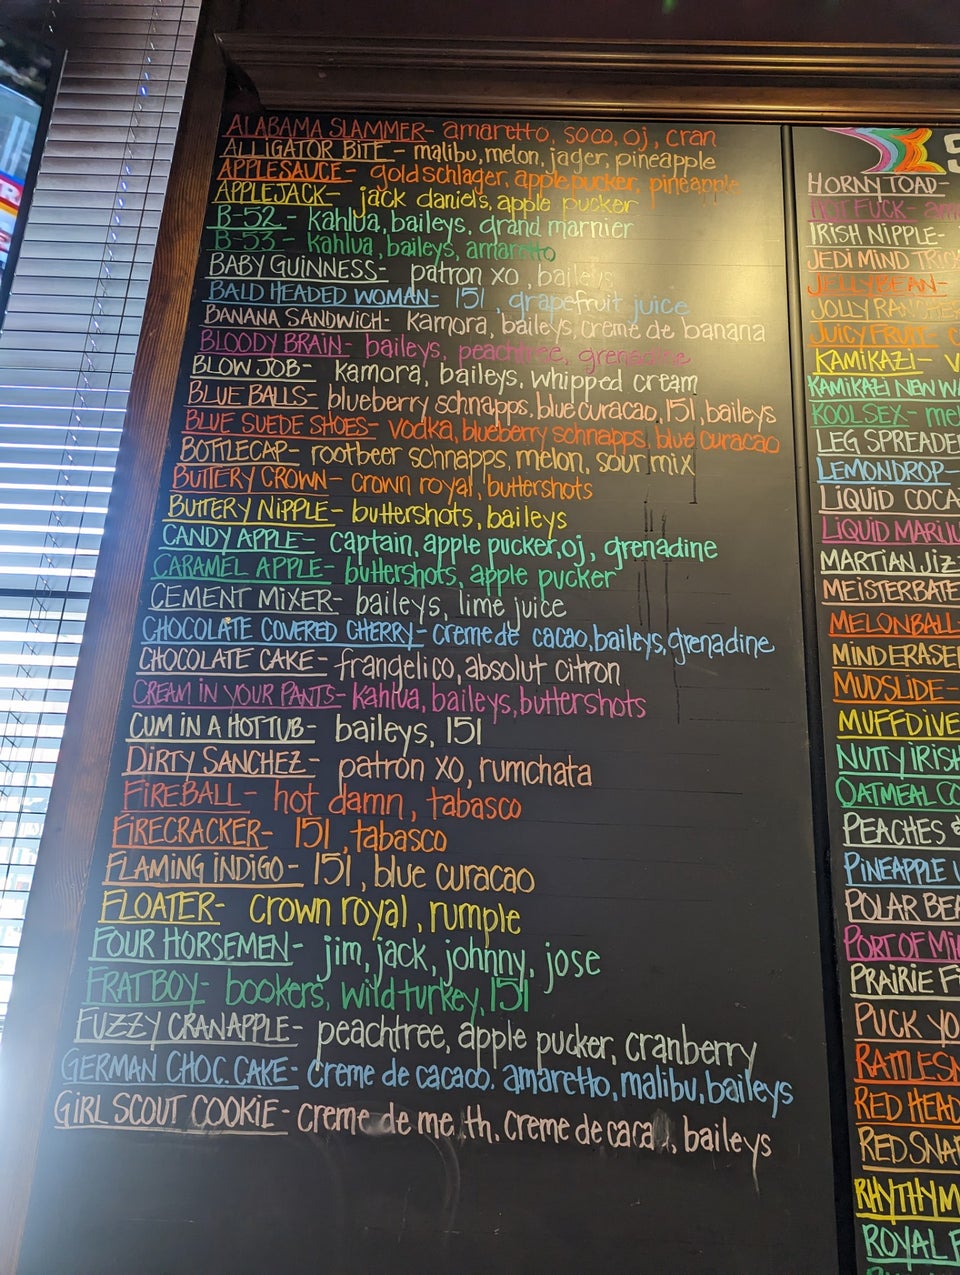 ALABAMA SLAMMER- amaretto, soco, oj, cran
ALLIGATOR BITE - malibu, melon, jager, pineapple
APPLESAUCE- goldschlager, applepucker, pineapple
APPLEJACK- jack daniels, apple pucker
B-52 - kahlua, baileys, grand marnier
B-53 - kahlua, baileys, amaretto
BABY GUINNESS- patron xo, baileys
BALD HEADED WOMAN- 151, grapefruit juice
BANANA SANDWICH- kamora, baileys, creme de banana
BLOODY BRAIN- baileys, peachtree, grenadine
BLOW JOB- kamora, baileys, whipped cream
BLUE BALLS- blueberry schnapps, blue curacao, 151, baileys
BLUE SUEDE SHOES- vodka, blueberry schnapps, blue curacao
BOTTLECAP- rootbeer schnapps, melon, sour mix
BUTTERY CROWN- crown royal, buttershots
BUTTERY NIPPLE- buttershots, baileys
CANDY APPLE- captain, apple pucker, oj, grenadine
CARAMEL APPLE- buttershots, apple pucker
CEMENT MIXER- baileys, lime juice
CHOCOLATE COVERED CHERRY- creme de cacao, baileys, grenadine
CHOCOLATE CAKE- frangelico, absolut citron
CREAM IN YOUR PANTS- kahlua, baileys, buttershots
CUM IN A HOT TUB- baileys, 151
DIRTY SANCHEZ- patron xo, rumchata
FIREBALL- hot damn, tabasco
FIRECRACKER- 151, tabasco
FLAMING INDIGO- 151, blue curacao
FLOATER- crown royal, rumple
FOUR HORSEMEN- jim, jack, johnny, jose
FRAT BOY- bookers, wild turkey, 151
FUZZY CRANAPPLE- peachtree, apple pucker, cranberry
GERMAN CHOC. CAKE- creme de cacao. amaretto, malibu, baileys
GIRL SCOUT COOKIE- creme de me th, creme de caca , baileys
S
HORNY TOAD-
HOT FUCK-
IRISH NIPPLE-
JEDI MIND TRIC
JELLYBEAN-
JOLLY RANCHE
JUICY FRUIT-
KAMIKAZI- V
KAMIKAZI NEW WA
KOOL SEX- mel
LEG SPREADE
LEMONDROP-
LIQUID COCA
LIQUID MARIJU
MARTIAN JIZ
MEISTERBATE
MELONBALL-
MIND ERASE
MUDSLIDE-
MUFFDIVE
NUTTY IRISH
OATMEAL CO
PEACHES &
PINEAPPLE U
POLAR BEA
PORT OF MI
PRAIRIE FI
PUCK YO
RATTLESN
RED HEAD
RED SNA
RHYTHYM
ROYAL F